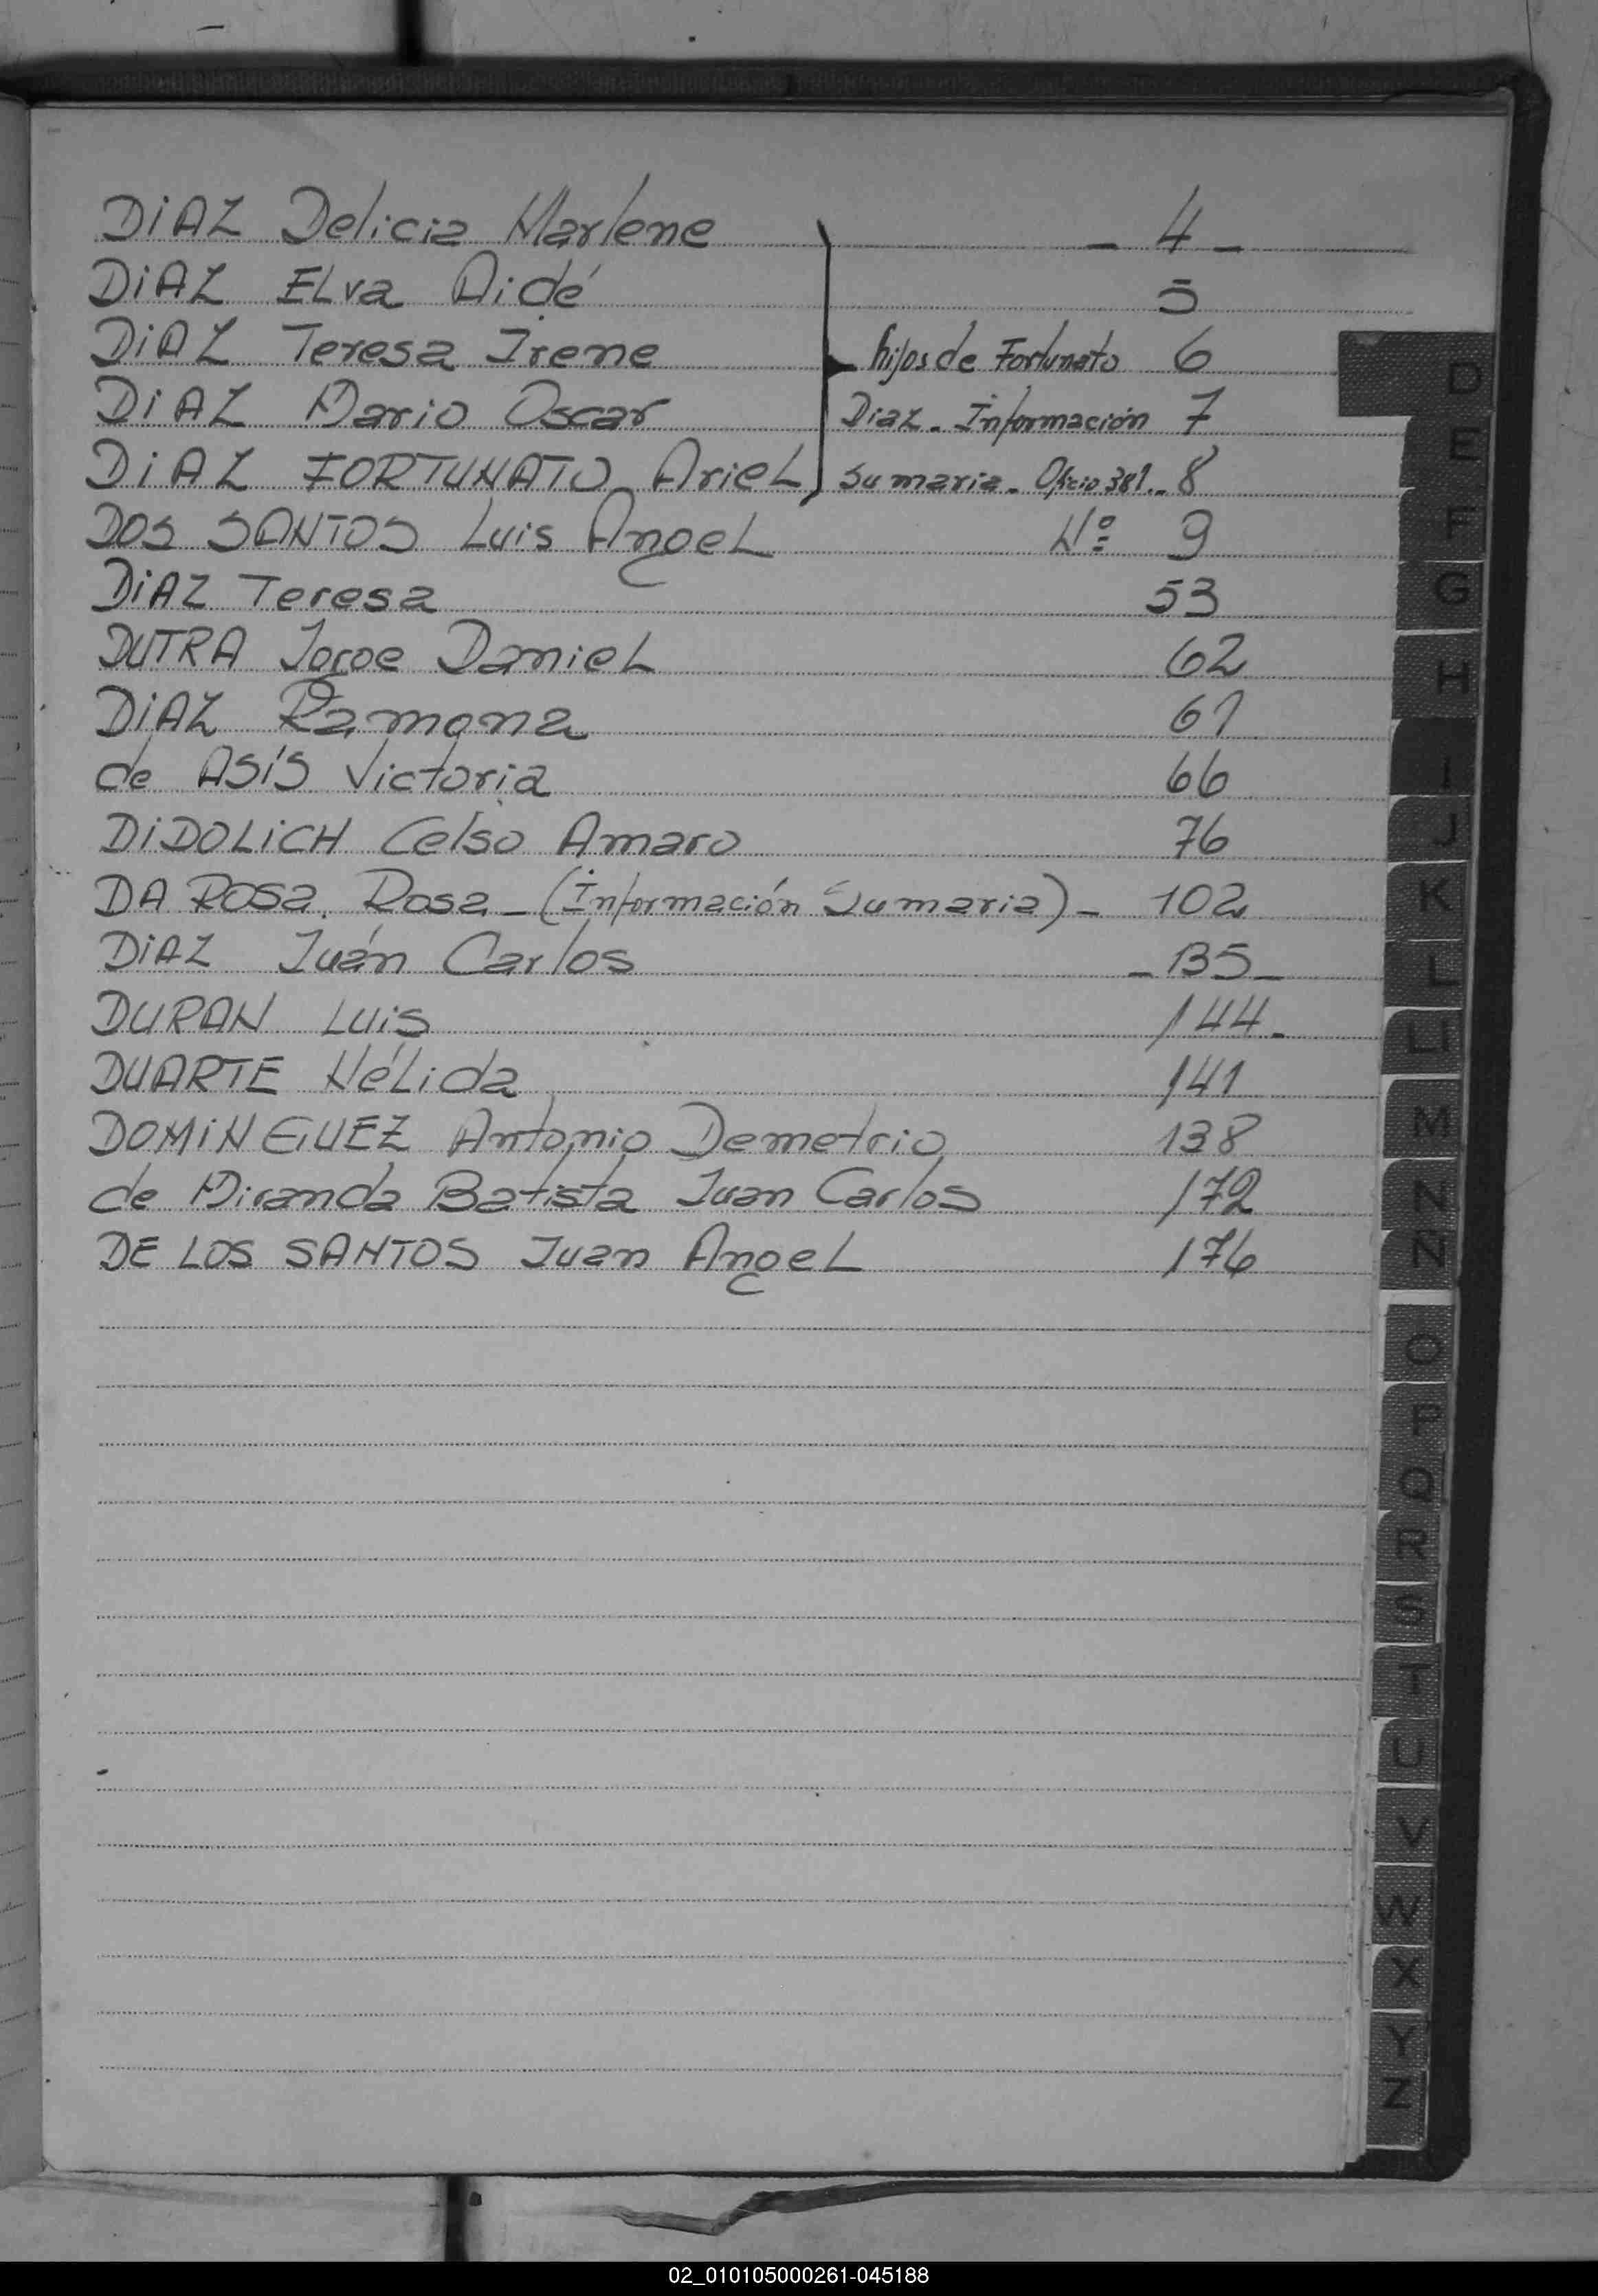 DiAZ Delicia Marlene - 4 -
DiAZ ELva Aidé 5
DiAZ Teresa Irene hijos de Fortunato 6
DiAZ Mario Oscar Diaz - Información 7
DiAZ FORTUNATO ArieL sumaria - Oficio 381 - 8
DOS SANTOS Luis AngeL Nº 9
DiAZ Teresa 53
DUTRA Jorge DanieL 62
DiAZ Ramona 61
de ASÍS Victoria 66
DiDOLiCH Celso Amaro 76
DA ROSA Rosa - (Información Sumaria) - 102
DiAZ Juán Carlos - 135 -
DURAN Luis 144 -
DUARTE NéLida 141
DOMiNGUEZ Antonio Demetrio 138
de Miranda Batista Juan Carlos 172
DE LOS SANTOS Juan AngeL 176
D
E
F
G
H
I
J
K
L
LL
M
N
N
O
P
Q
R
S
T
U
V
W
X
Y
Z
02_010105000261-045188